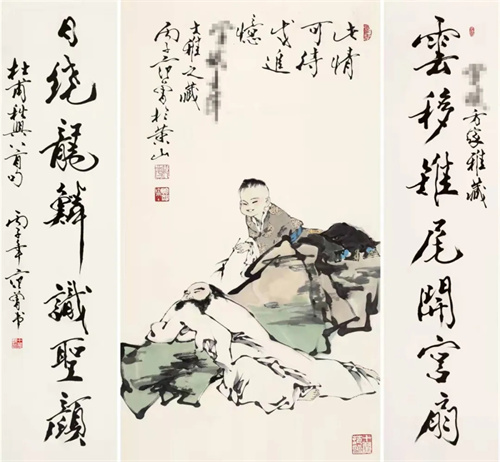 雲移雉尾開宮扇
方家雅藏
此情
可待
成追
憶
大雅之藏
丙子范曾於葉山
日繞龍鱗識聖顏
杜甫秋興八首句
丙子年范曾书